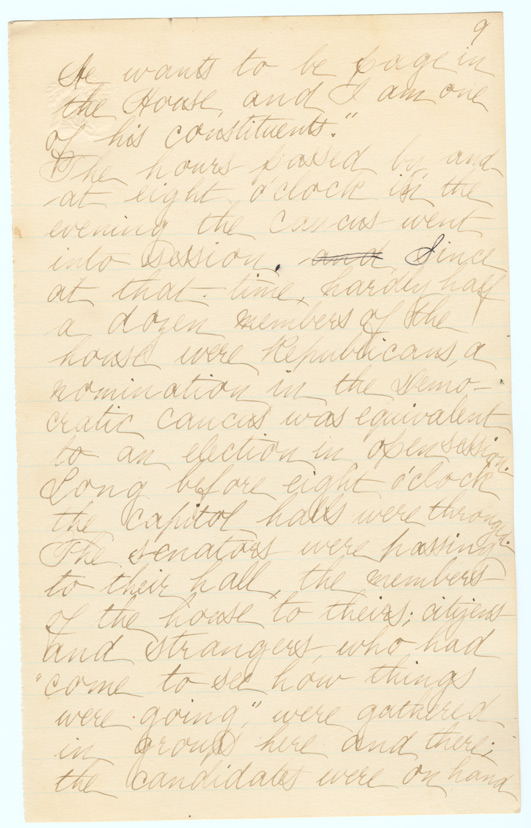 9
He wants to be page in
the House, and I am one
of his constituents."
The hours passed by, and
at eight o'clock in the
evening the caucus went
into session. and Since
at that time, hardly half
a dozen members of the
house were Republicans, a
nomination in the Demo-
cratic caucus was equivalent
to an election in open session.
Long before eight o'clock
the capitol halls were thronged.
The senators were passing
to their hall, the members
of the house to theirs; citizens
and strangers, who had
"come to see how things
were going," were gathered
in groups here and there;
the candidates were on hand